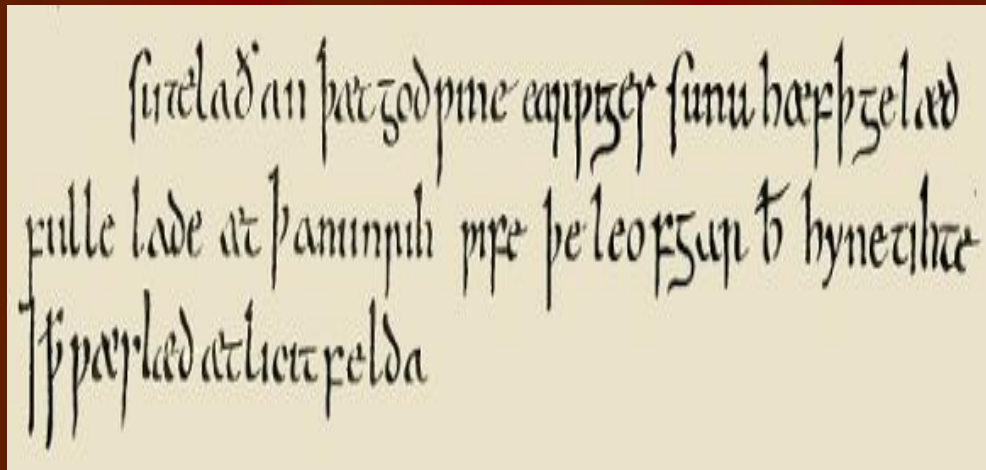 sutelað an þæt godƿine earƿiges sunu hæfþ gelæd
fulle lade æt þan unrih ƿife þe leofgar ƀ hyne tihte
⁊ ꝥ ƿæs læd æt licitfelda